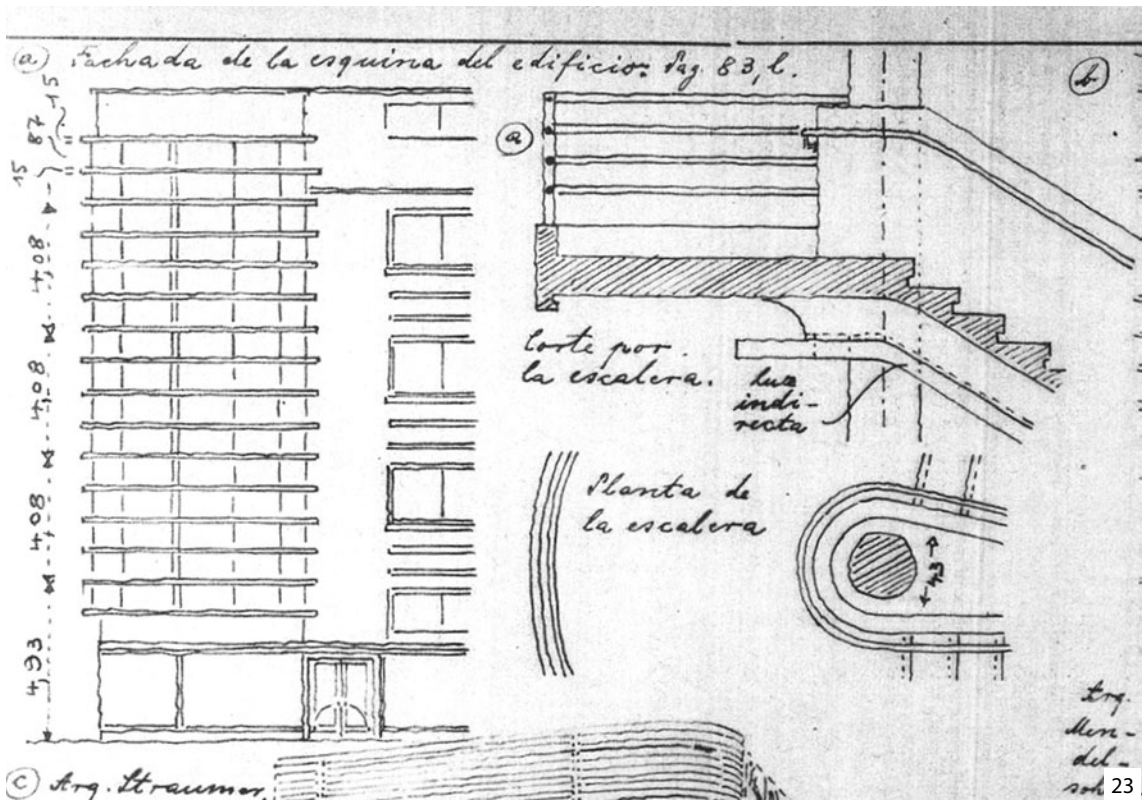 a Fachada de la esquina del edificio: Pag. 83, l.
b
a
15
87
15
4,08
4,08
4,08
4,93
Corte por
la escalera.
luz
indi-
recta
Planta de
la escalera
43
Arq.
Men-
del-
soh
c Arq. Straumer,
23